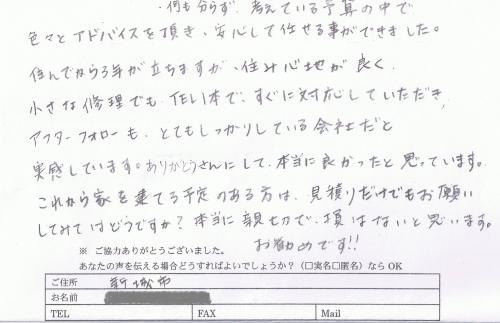 ・何も分らず、考えている予算の中で
色々とアドバイスを頂き、安心して任せる事ができました。
住んでから3年が立ちますが、住み心地が良く、
小さな修理でも、TEL1本で、すぐに対応していただき、
アフターフォローも、とてもしっかりしている会社だと
実感しています。ありがとうさんにして、本当に良かったと思っています。
これから家を建てる予定のある方は、見積りだけでもお願い
してみてはどうですか？本当に親切で、損はないと思います。
お勧めです!!
※ ご協力ありがとうございました。
あなたの声を伝える場合どうすればよいでしょうか？（□実名□匿名）なら OK
ご住所 新城市
お名前
TEL FAX Mail